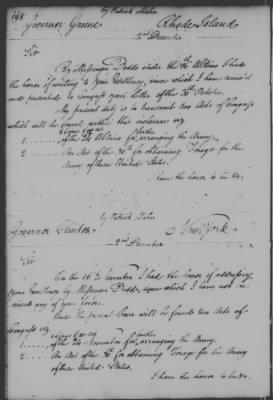 198
by Patrick Maher
Governor Greene Rhode Island
2nd December
Sir
By Messenger Dodd under the 16th Ultimo I had
the honor of writing to your Excellency, since which I have received
and presented to Congress your Letter of the October
My present duty is to transmit two Acts of Congress
which will be found within this inclosure viz
1 of the 24 Ultimo for further arranging the Army
2 An Act of the 30th for obtaining Forage for the
Army of these United States.
I have the honor to be &c.
by Patrick Maher
Governor Clinton New York
2nd December
Sir
On the 16th November I had the honor of addressing
your Excellency by Messenger Dodd, since which I have not re-
ceived any of your Favors.
Under the present Cover will be found two Acts of
Congress viz
1 of the 24 November for further arranging the Army.
2 An Act of the 30th for obtaining Forage for the Army
of these United States.
I have the honor to be &c.